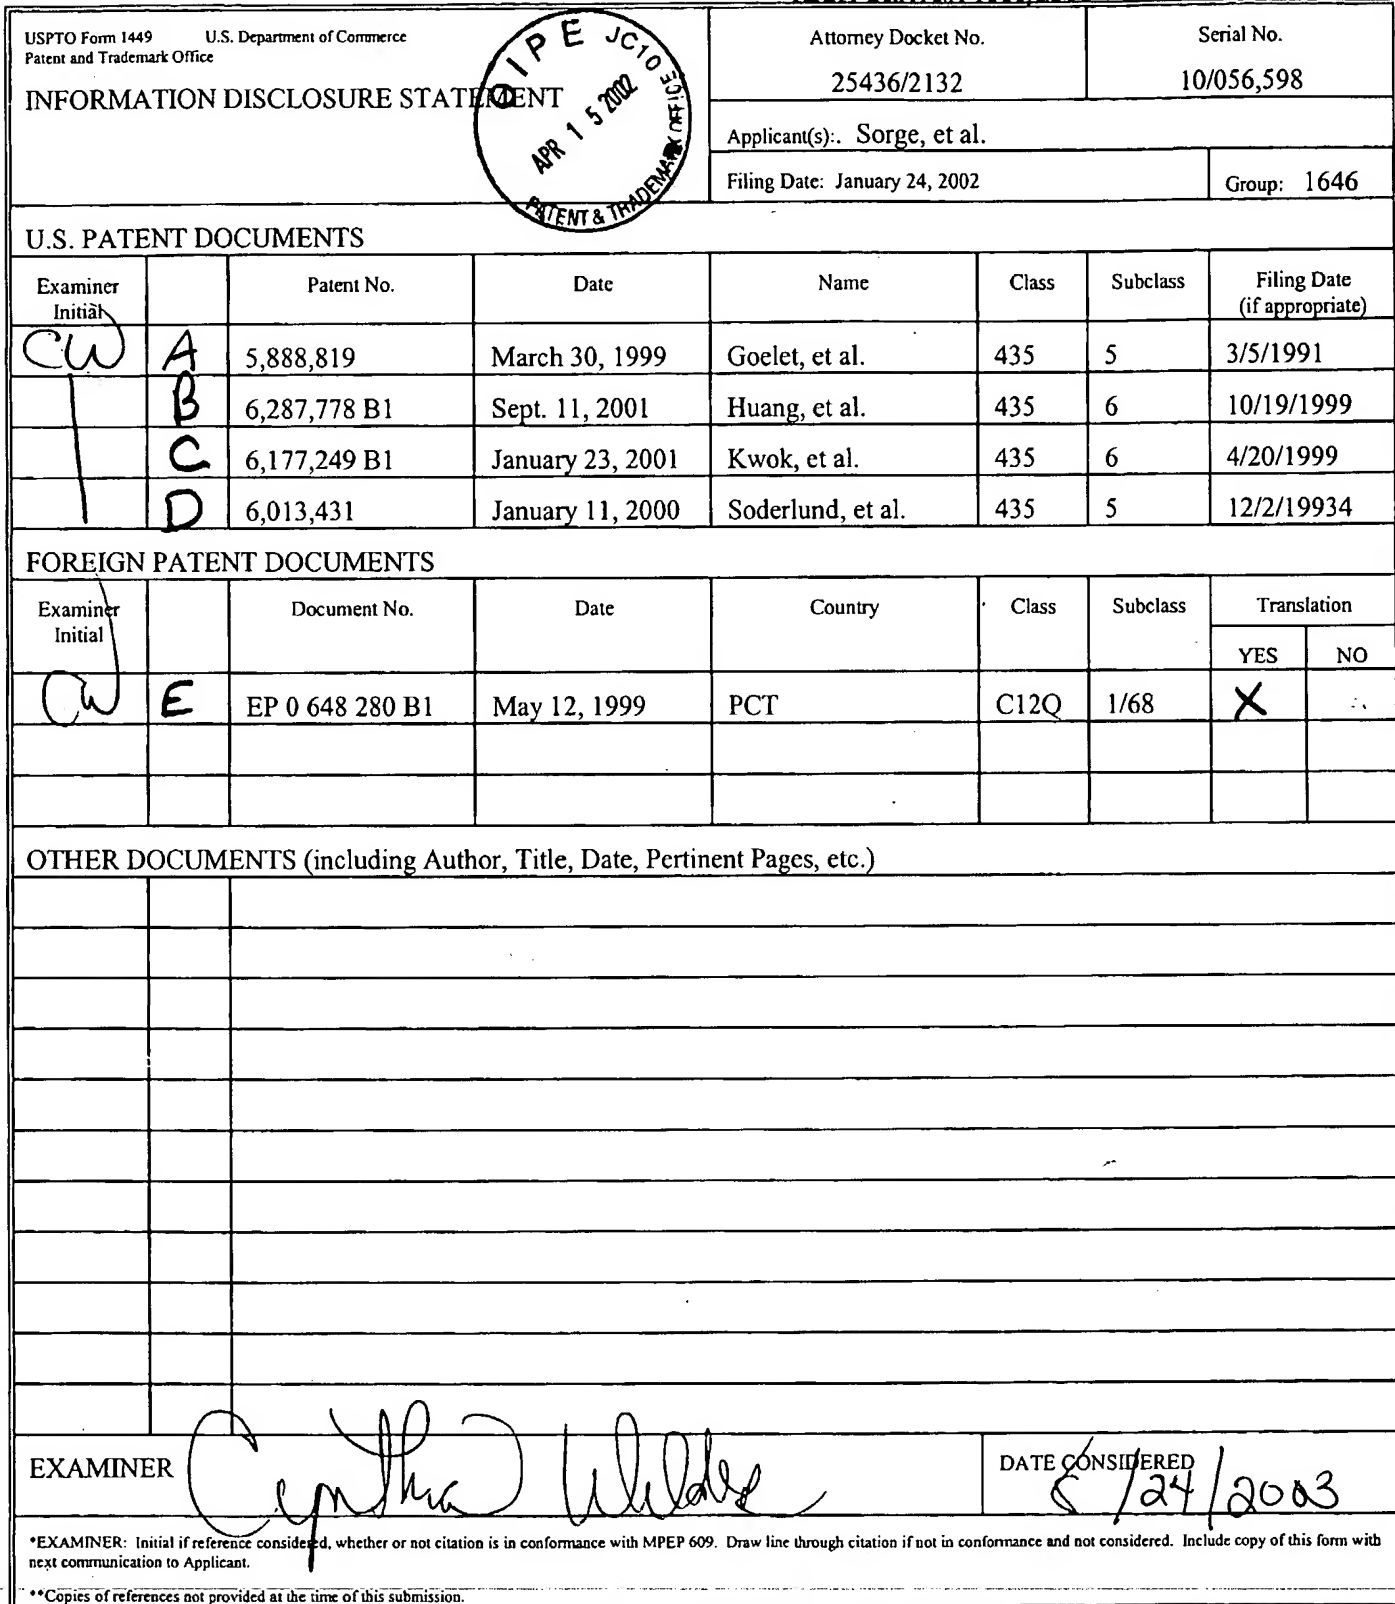 USPTO Form 1449 U.S. Department of Commerce
Patent and Trademark Office
INFORMATION DISCLOSURE STATEMENT
OIPE JC10
APR 15 2002
PATENT & TRADEMARK OFFICE
Attorney Docket No.
25436/2132
Serial No.
10/056,598
Applicant(s):. Sorge, et al.
Filing Date: January 24, 2002
Group: 1646
U.S. PATENT DOCUMENTS
Examiner Initial Patent No. Date Name Class Subclass Filing Date (if appropriate)
CW A 5,888,819 March 30, 1999 Goelet, et al. 435 5 3/5/1991
B 6,287,778 B1 Sept. 11, 2001 Huang, et al. 435 6 10/19/1999
C 6,177,249 B1 January 23, 2001 Kwok, et al. 435 6 4/20/1999
D 6,013,431 January 11, 2000 Soderlund, et al. 435 5 12/2/19934
FOREIGN PATENT DOCUMENTS
Examiner Initial Document No. Date Country Class Subclass Translation
YES NO
CW E EP 0 648 280 B1 May 12, 1999 PCT C12Q 1/68 X
OTHER DOCUMENTS (including Author, Title, Date, Pertinent Pages, etc.)
EXAMINER Cynthia Wilder
DATE CONSIDERED 8/24/2003
*EXAMINER: Initial if reference considered, whether or not citation is in conformance with MPEP 609. Draw line through citation if not in conformance and not considered. Include copy of this form with
next communication to Applicant.
**Copies of references not provided at the time of this submission.